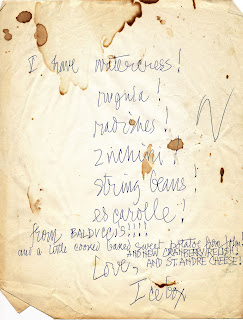 I have watercress!
rugula!
radishes!
zuchini!
string beans!
escarolle!
from BALDUCCIS!!!!
and a little cooked baked sweet potatoe
AND NEW CRANBERRY RELISH!
Love, AND ST. ANDRE CHEESE!
Icebox